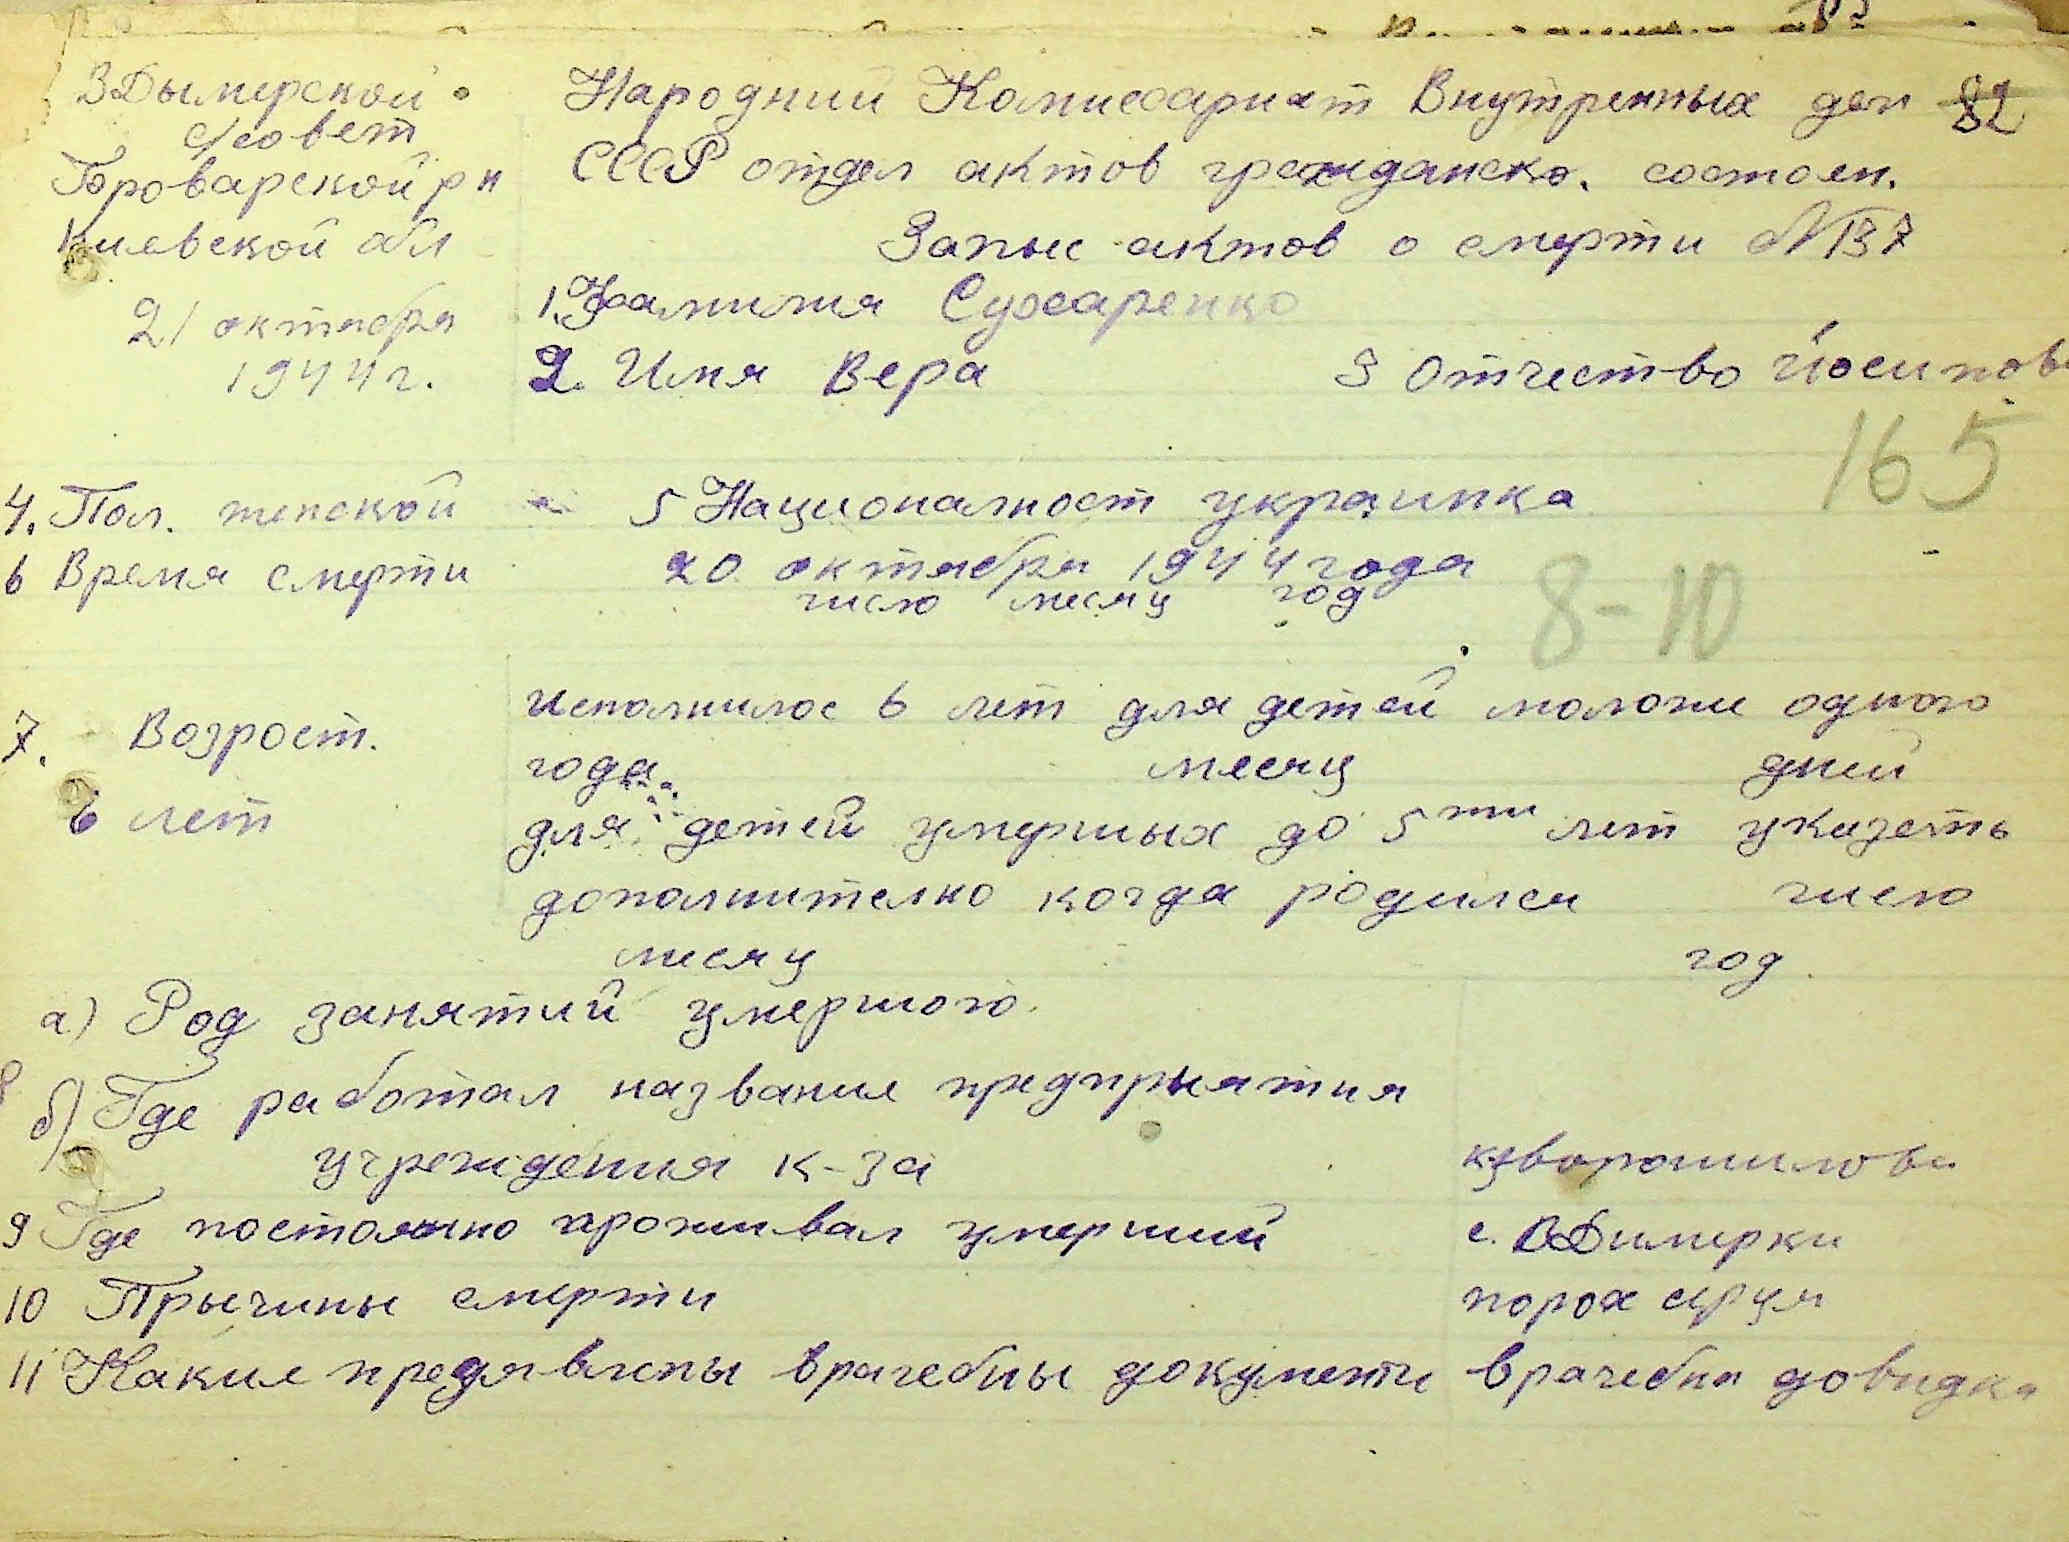 ВДымерской
с/совет
Броварской рн
Киевской обл
21 октября
1944 г.
Народний Комиссариат Внутренных дел 82
СССР отдел актов гражданско. состоян.
Запыс актов о смерти №137
1. Фамилия Сухаренко
2. Имя Вера 3 Отчество Йосипов
165
4. Пол. женской 5 Националност украинка
6 Время смерти 20 октября 1944 года
число месяц год
8-10
7. Возрост.
6 лет
Исполнилос 6 лет для детей моложе одного
года. месяц дней
для детей умерших до 5ти лет указать
дополнително когда родился число
месяц год.
а) Род занятий умершого.
8 б) Где работал название предпрыятия
учреждения к-за кз Ворошилова
9 Где постоянно проживал умерший с. ВДимерки
10 Прычины смерти порох серця
11 Какие предявлены врачебны документи врачебна довидка